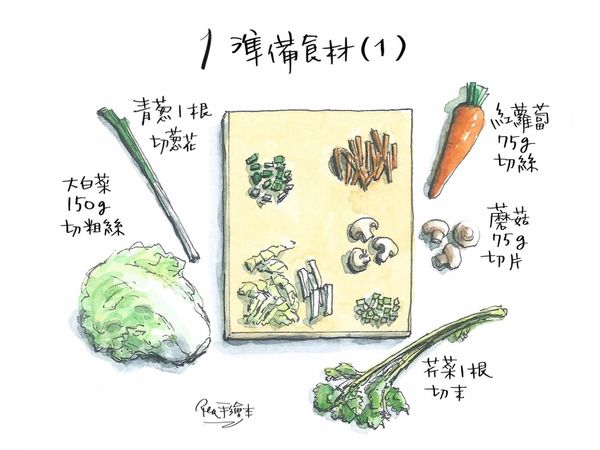 1 準備食材(1)
青蔥1根
切蔥花
大白菜
150g
切粗絲
紅蘿蔔
75g
切絲
蘑菇
75g
切片
芹菜1根
切末
手繪本